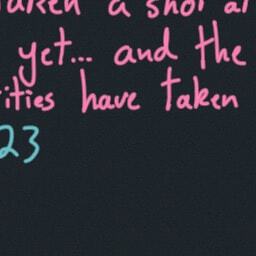 taken a shot at
yet... and the
ities have taken
23